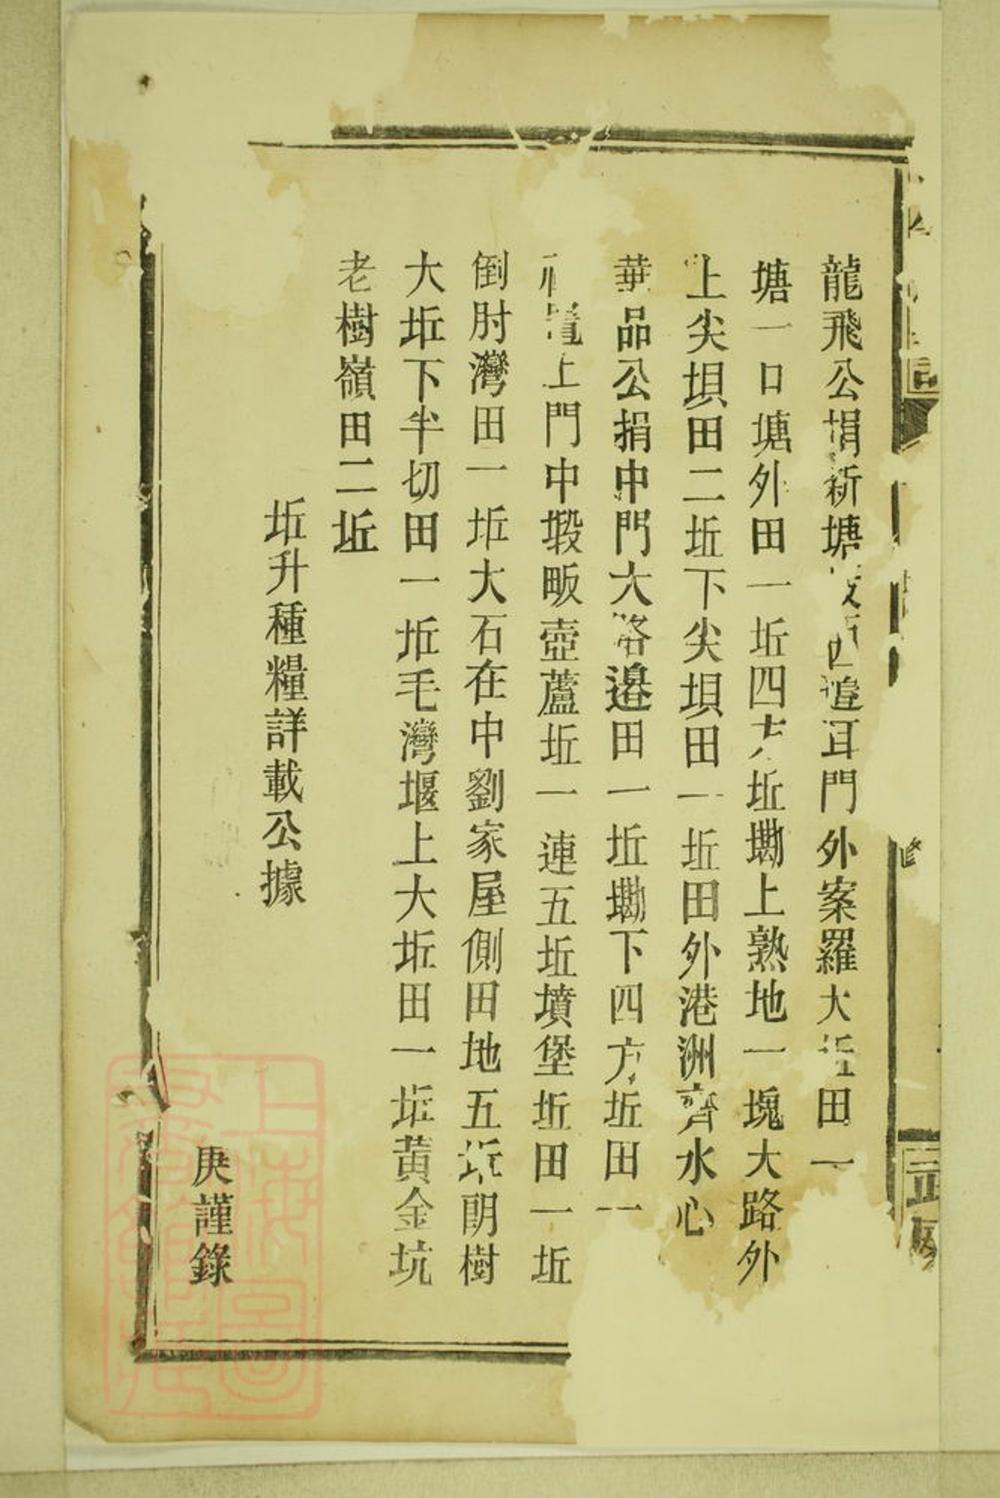 龍飛公捐新塘四邉耳門外案羅大坵田一
塘一口塘外田一坵四方坵墈上熟地一塊大路外
上尖垻田二坵下尖垻田一坵田外港洲齊水心
華品公捐中門大路邉田一坵墈下四方坵田一
上門中塅畈壺蘆坵一連五坵墳堡坵田一坵
倒肘灣田一坵大石在中劉家屋側田地五坵朗樹
大坵下半切田一坵毛灣堰上大坵田一坵黃金坑
老樹嶺田二坵
坵升種糧詳載公據
庚謹錄